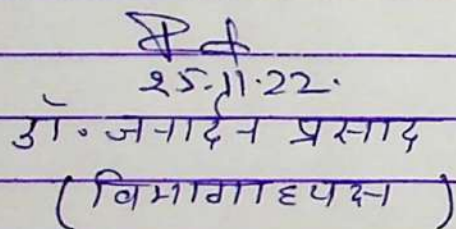 25.11.22.
डॉ. जनार्दन प्रसाद
(विभागाध्यक्ष)